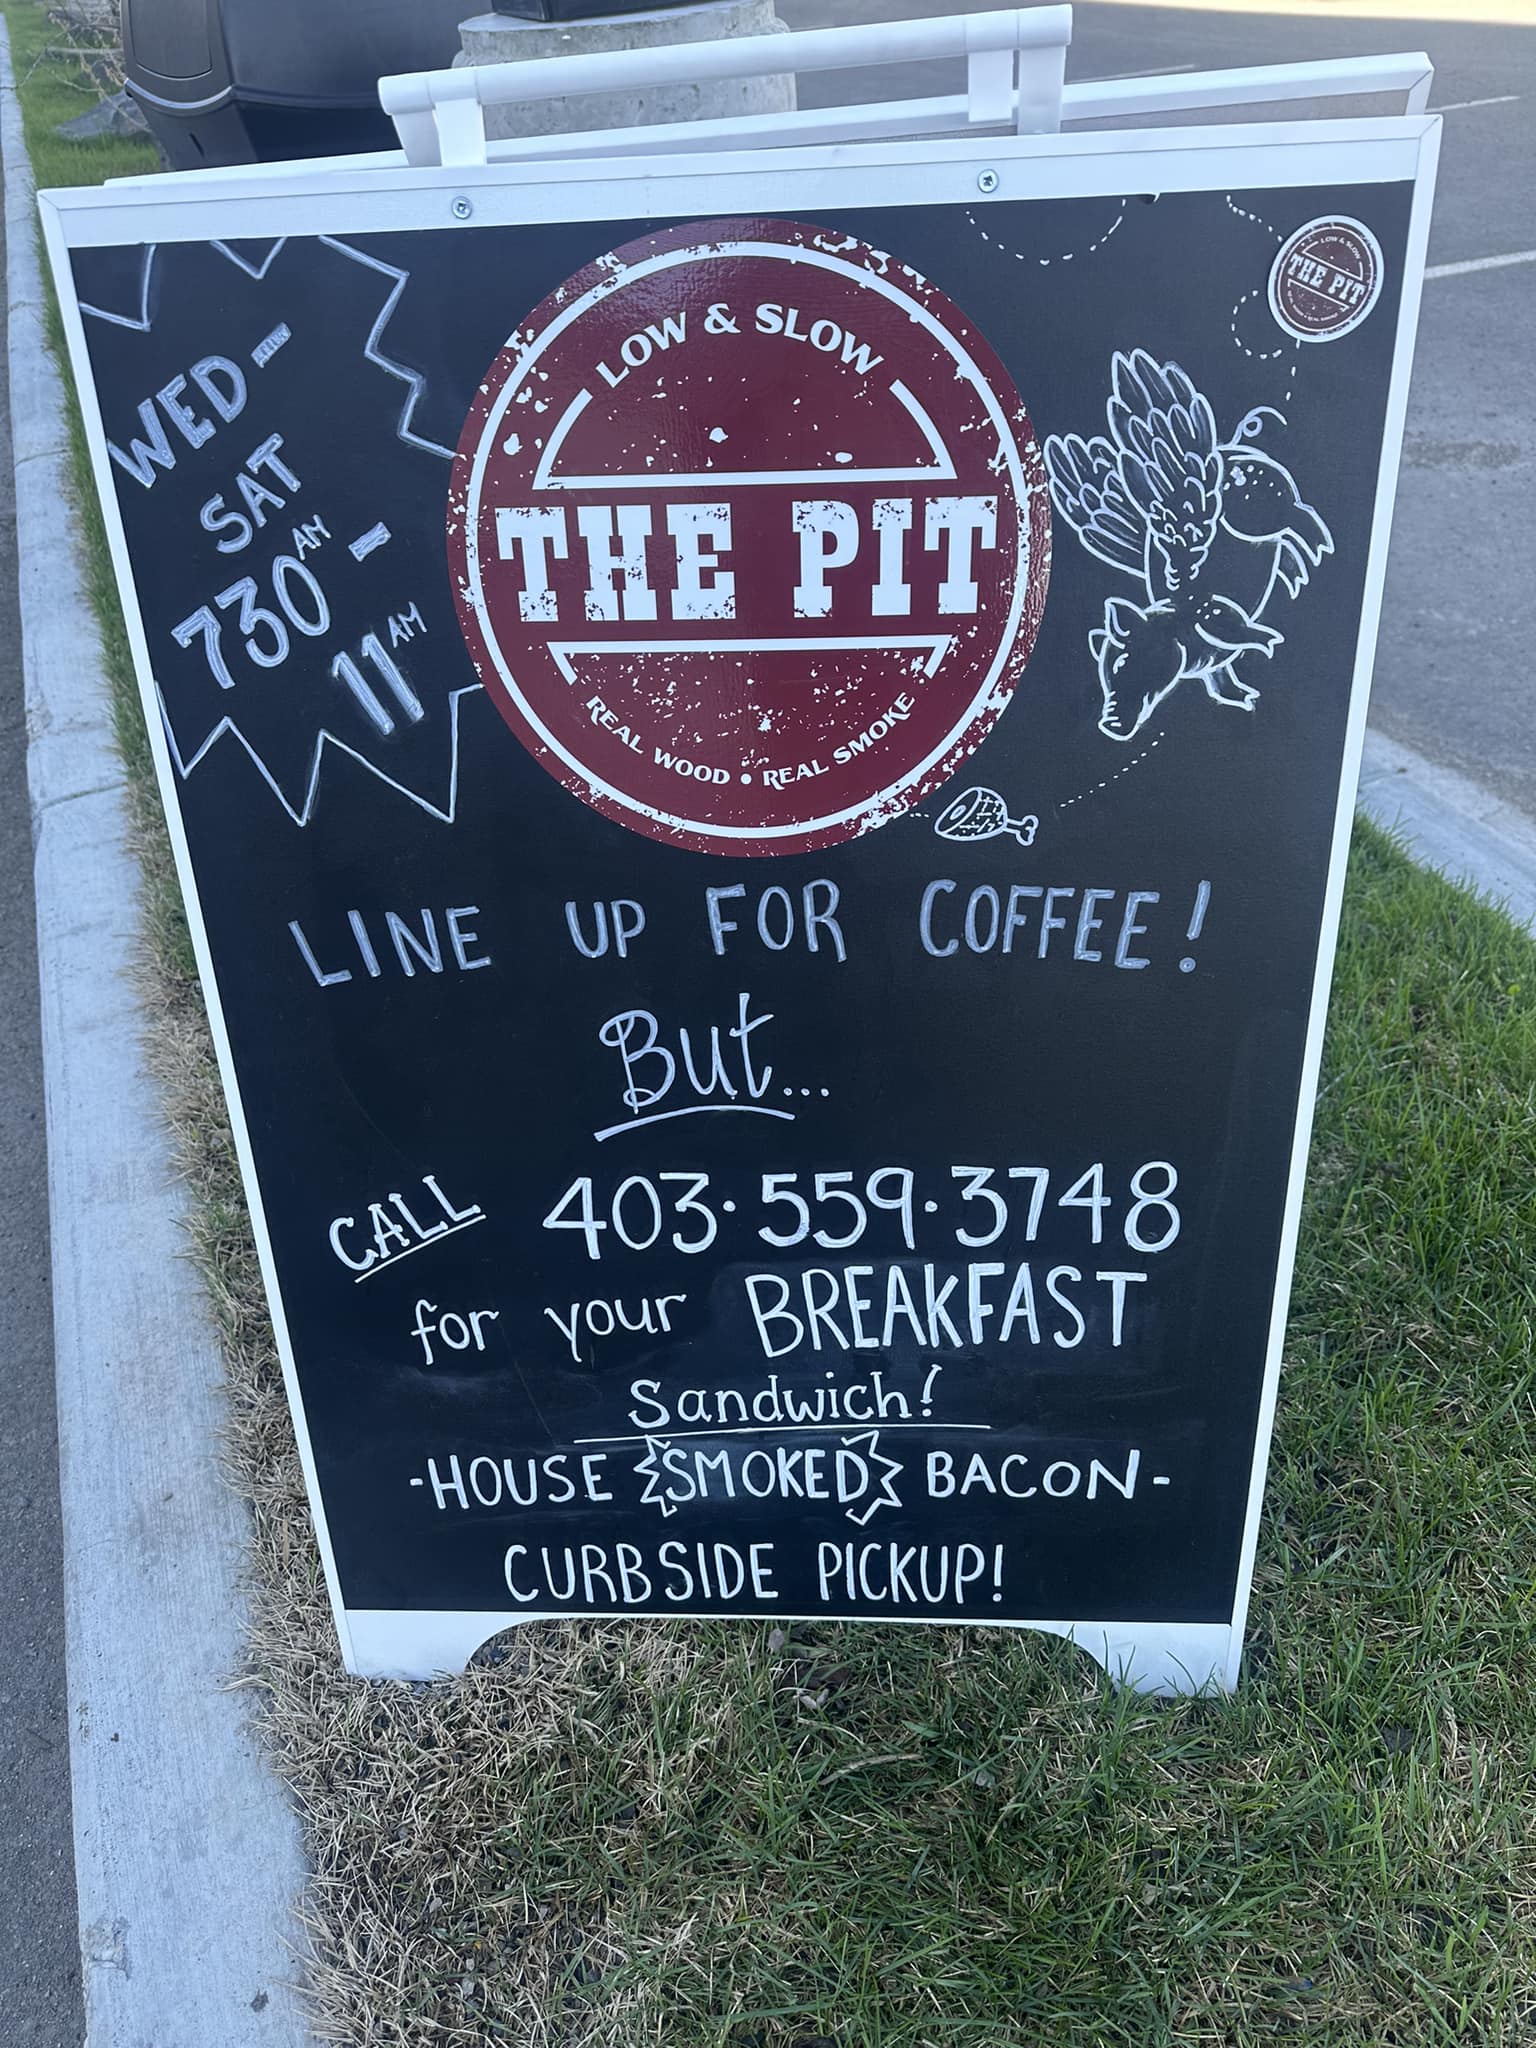 WED-
SAT
730AM-
11AM
LOW & SLOW
THE PIT
REAL WOOD • REAL SMOKE
LOW & SLOW
THE PIT
LINE UP FOR COFFEE!
But...
CALL 403·559·3748
for your BREAKFAST
Sandwich!
-HOUSE SMOKED BACON-
CURBSIDE PICKUP!